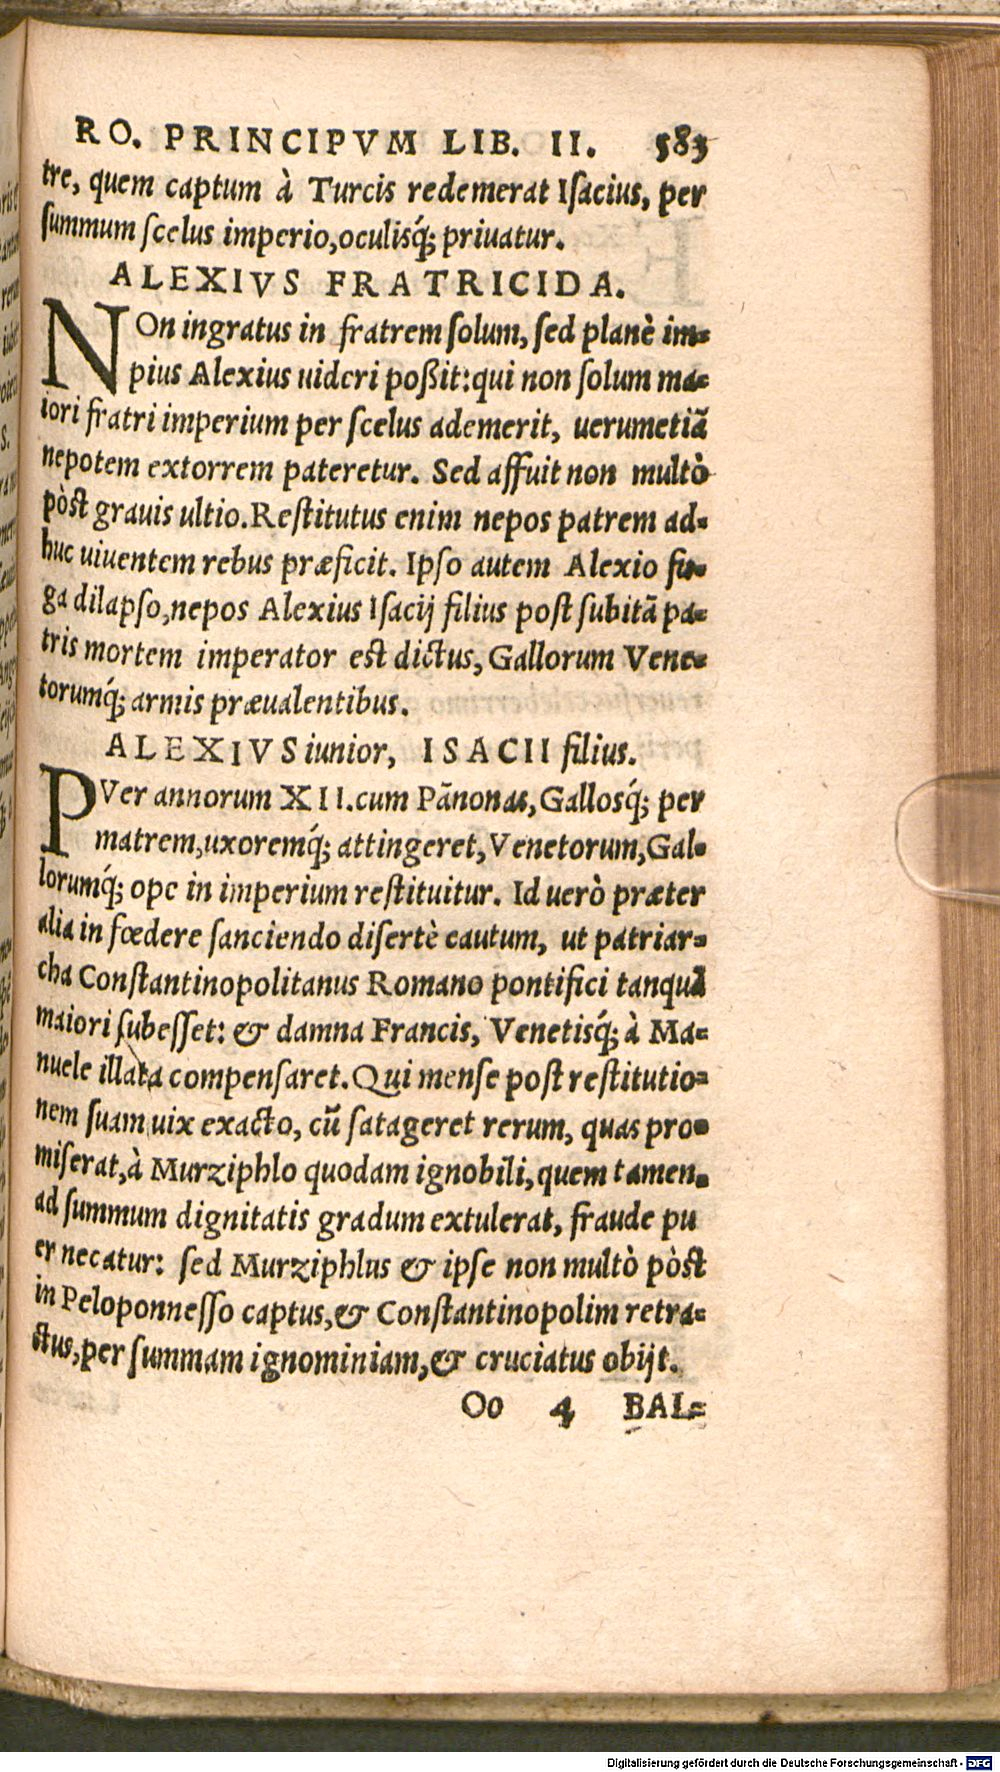 RO. PRINCIPVM LIB. II. 583
tre, quem captum à Turcis redemerat Iſacius, per
ſummum ſcelus imperio, oculisq́; priuatur.
ALEXIVS FRATRICIDA.
NOn ingratus in fratrem ſolum, ſed planè im=
pius Alexius uideri poßit: qui non ſolum ma=
iori fratri imperium per ſcelus ademerit, uerumetiā
nepotem extorrem pateretur. Sed affuit non multò
pòſt grauis ultio. Reſtitutus enim nepos patrem ad=
huc uiuentem rebus præficit. Ipſo autem Alexio fu=
ga dilapſo, nepos Alexius Iſacij filius poſt ſubitā pa=
tris mortem imperator eſt dictus, Gallorum Vene=
torumq́; armis præualentibus.
ALEXIVS iunior, ISACII filius.
PVer annorum XII. cum Pānonas, Gallosq́; per
matrem, uxoremq́; attingeret, Venetorum, Gal=
lorumq́; ope in imperium reſtituitur. Id uerò præter
alia in fœdere ſanciendo diſertè cautum, ut patriar=
cha Conſtantinopolitanus Romano pontifici tanquā
maiori ſubeſſet: & damna Francis, Venetisq́; à Ma=
nuele illata compenſaret. Qui menſe poſt reſtitutio=
nem ſuam uix exacto, cū ſatageret rerum, quas pro=
miſerat, à Murziphlo quodam ignobili, quem tamen
ad ſummum dignitatis gradum extulerat, fraude pu
er necatur: ſed Murziphlus & ipſe non multò pòſt
in Peloponneſſo captus, & Conſtantinopolim retra=
ctus, per ſummam ignominiam, & cruciatus obijt.
Oo 4 BAL=
Digitalisierung gefördert durch die Deutsche Forschungsgemeinschaft - DFG